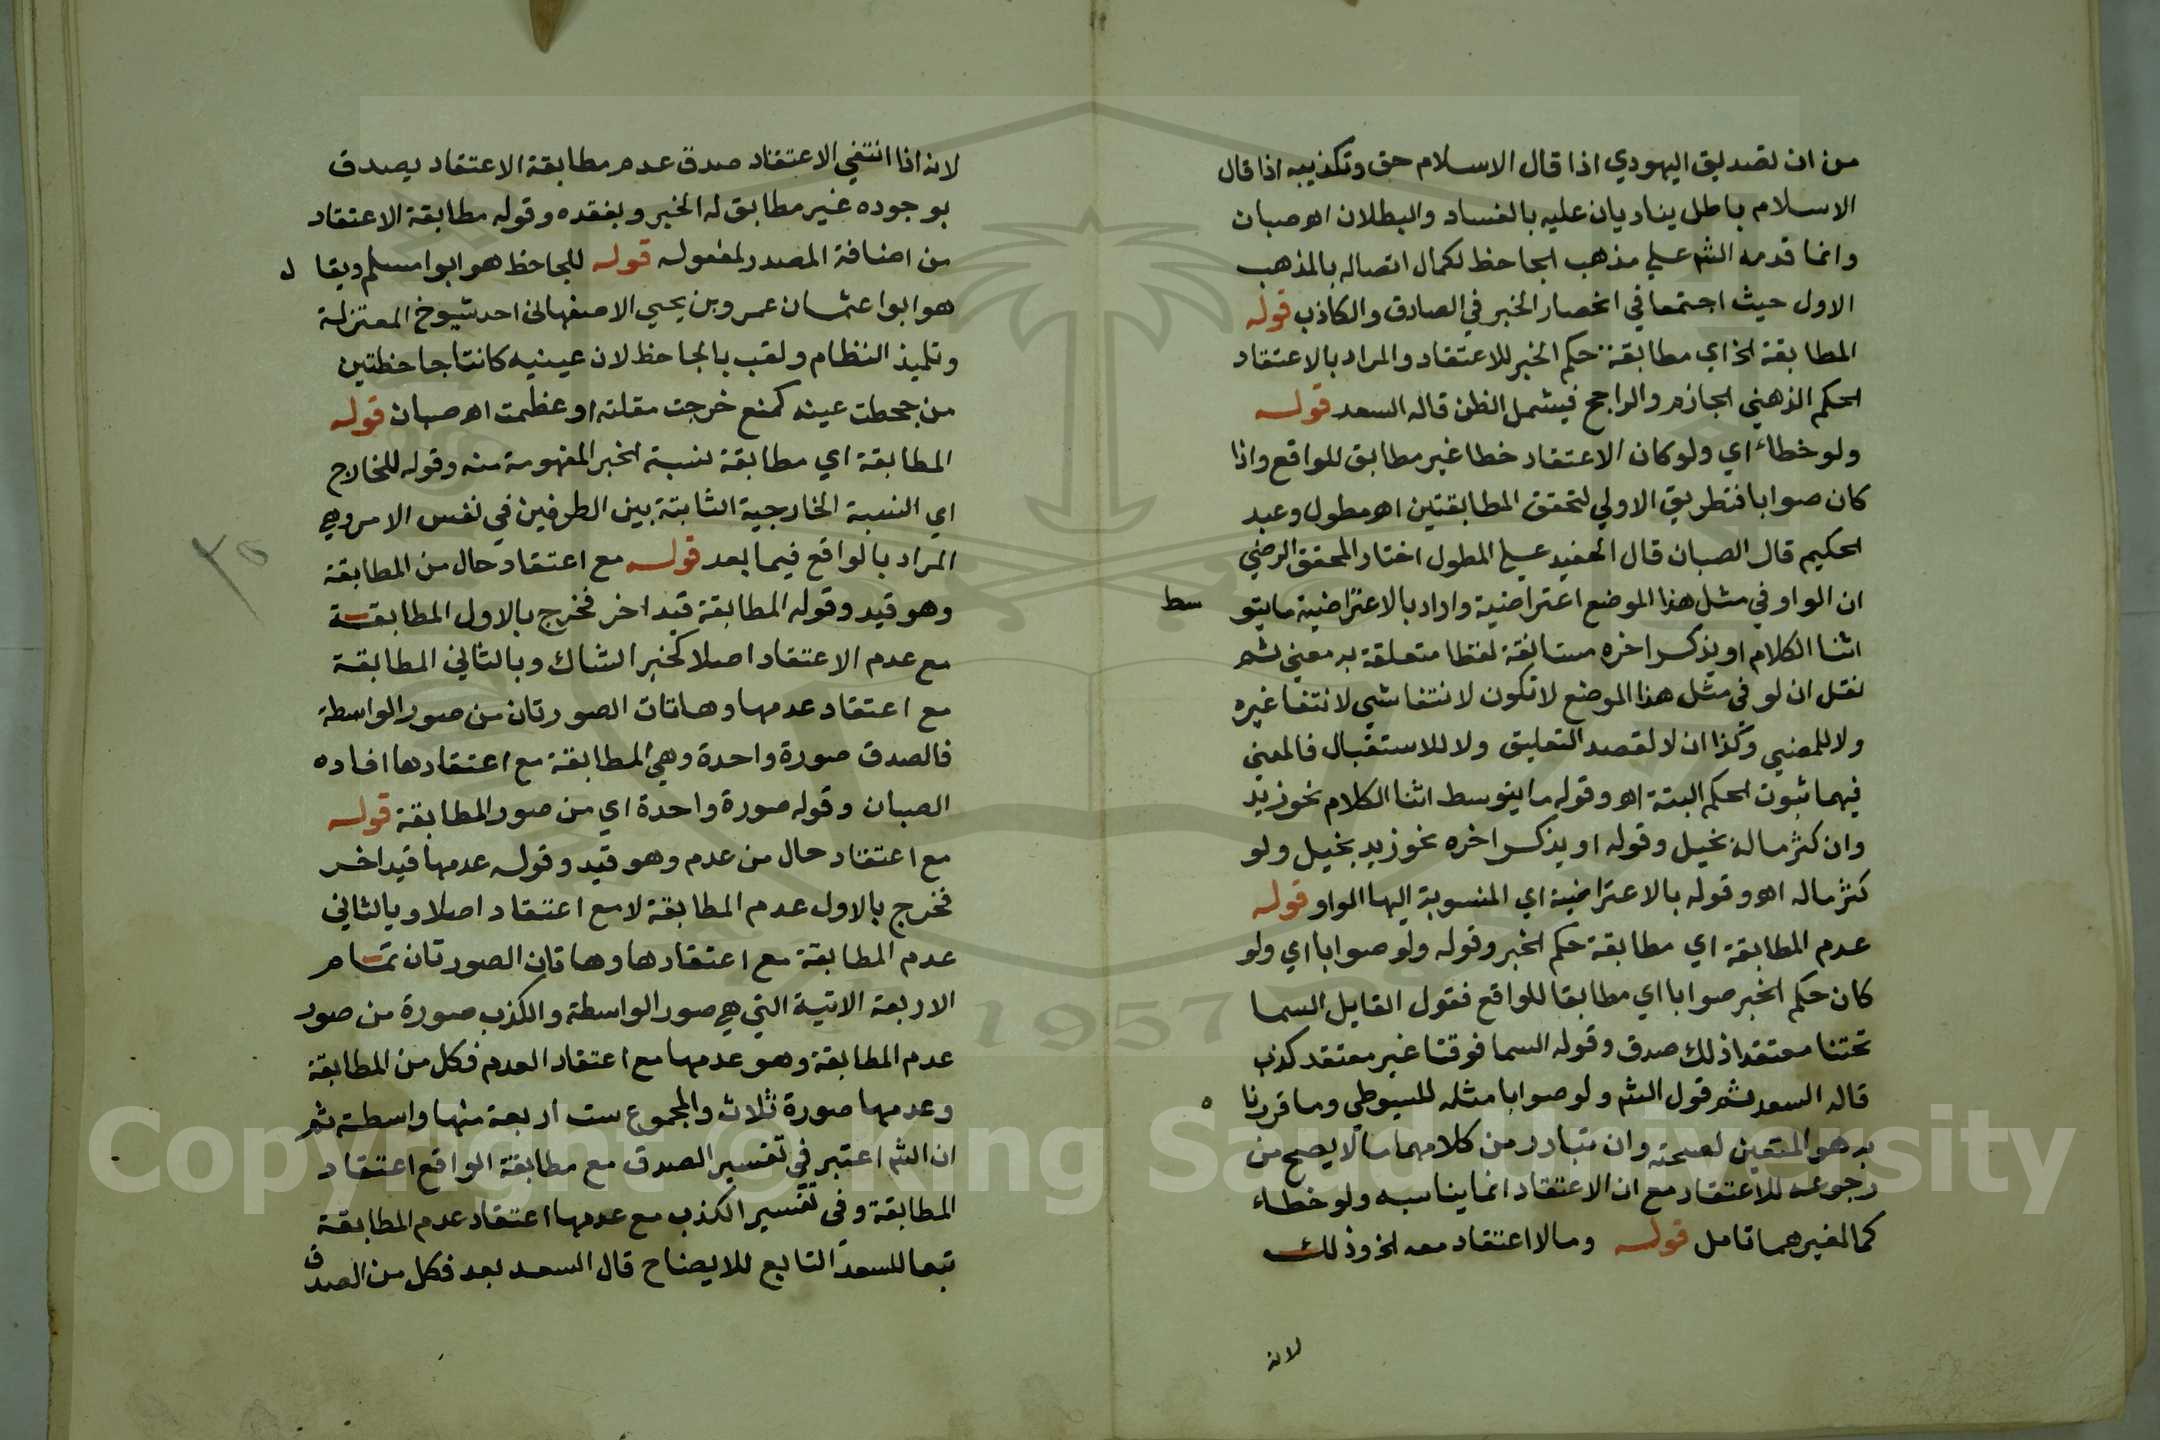 من ان تصديق اليهودي اذا قال الاسلام حق وتكذيبه اذا قال
الاسلام باطل يناديان عليه بالفساد والبطلان اه صبان
وانما قدمه الشم علي مذهب الجاحظ لكمال اتصاله بالمذهب
الاول حيث اجتمعا في انحصار الخبر في الصادق والكاذب قوله
المطابقة الخ اي مطابقة حكم الخبر للاعتقاد والمراد بالاعتقاد
الحكم الذهني الجازم والراجح فيشمل الظن قاله السعد قوله
ولو خطاء اي ولو كان الاعتقاد خطا غير مطابق للواقع واذا
كان صوابا فبطريق الاولي لتحقق المطابقتين اه مطول وعبد
الحكيم قال الصبان قال الحفيد علي المطول اختار المحقق الرضي
ان الواو في مثل هذا الموضع اعتراضية واراد بالاعتراضية ما يتو سط
اثنا الكلام او يذكر اخره مستانفة لفظا متعلقة به معني ثم
نقل ان لو في مثل هذا الموضع لا تكون لانتفا شي لانتفا غيره
ولا للمضي وكذا ان لا لقصد التعليق ولا للاستقبال فالمعنى
فيهما ثبوت الحكم البتة اه وقوله ما يتوسط اثنا الكلام نحو زيد
وان كثر ماله بخيل وقوله او يذكر اخره نحو زيد بخيل ولو
كثر ماله اه وقوله بالاعتراضية اي المنسوبة اليها الواو قوله
عدم المطابقة اي مطابقة حكم الخبر وقوله ولو صوابا اي ولو
كان حكم الخبر صوابا اي مطابقا للواقع فقول القايل السما
تحتنا معتقدا ذلك صدق وقوله السما فوقنا غير معتقد كذب
قاله السعد ثم قول الشم ولو صوابا مثله للسيوطي وما قررنا ه
به هو المتعين لصحته وان تبادر من كلامهما ما لا يصح من
رجوعه للاعتقاد مع ان الاعتقاد انما يناسبه ولو خطاء
كما لغيرهما تامل قوله وما لا اعتقاد معه الخ وذلك
لانه
لانه اذا انتفي الاعتقاد صدق عدم مطابقة الاعتقاد يصدق
بوجوده غير مطابق له الخبر وبفقده وقوله مطابقة الاعتقاد
من اضافة المصدر لمفعوله قوله للجاحظ هو ابوا مسلم ويقا ل
هو ابوا عثمان عمرو بن يحيي الاصفهاني احد شيوخ المعتزلة
وتلميذ النظام ولقب بالجاحظ لان عينيه كانتا جاحظتين
من جحظت عينه كمنع خرجت مقلته او عظمت اه صبان قوله
المطابقة اي مطابقة نسبة الخبر المفهومة منه وقوله للخارج
اي النسبة الخارجية الثابتة بين الطرفين في نفس الامر وهي
المراد بالواقع فيما بعد قوله مع اعتقاد حال من المطابقة
وهو قيد وقوله المطابقة قيد اخر فخرج بالاول المطابقة
مع عدم الاعتقاد اصلا كخبر الشاك وبالثاني المطابقة
مع اعتقاد عدمها وهاتان الصورتان من صور الواسطة
فالصدق صورة واحدة وهي المطابقة مع اعتقادها افاده
الصبان وقوله صورة واحدة اي من صور المطابقة قوله
مع اعتقاد حال من عدم وهو قيد وقوله عدمها قيد اخر
فخرج بالاول عدم المطابقة لا مع اعتقاد اصلا وبالثاني
عدم المطابقة مع اعتقادها وهاتان الصورتان تمام
الاربعة الاتية التي هي صور الواسطة والكذب صورة من صور
عدم المطابقة وهو عدمها مع اعتقاد العدم فكل من المطابقة
وعدمها صورة ثلاث والمجموع ست اربعة منها واسطة ثم
ان الشم اعتبر في تفسير الصدق مع مطابقة الواقع اعتقاد
المطابقة وفي تفسير الكذب مع عدمها اعتقاد عدم المطابقة
تبعا للسعد التابع للايضاح قال السعد بعد فكل من الصدق
٢٥
1957
Copyright © King Saud University